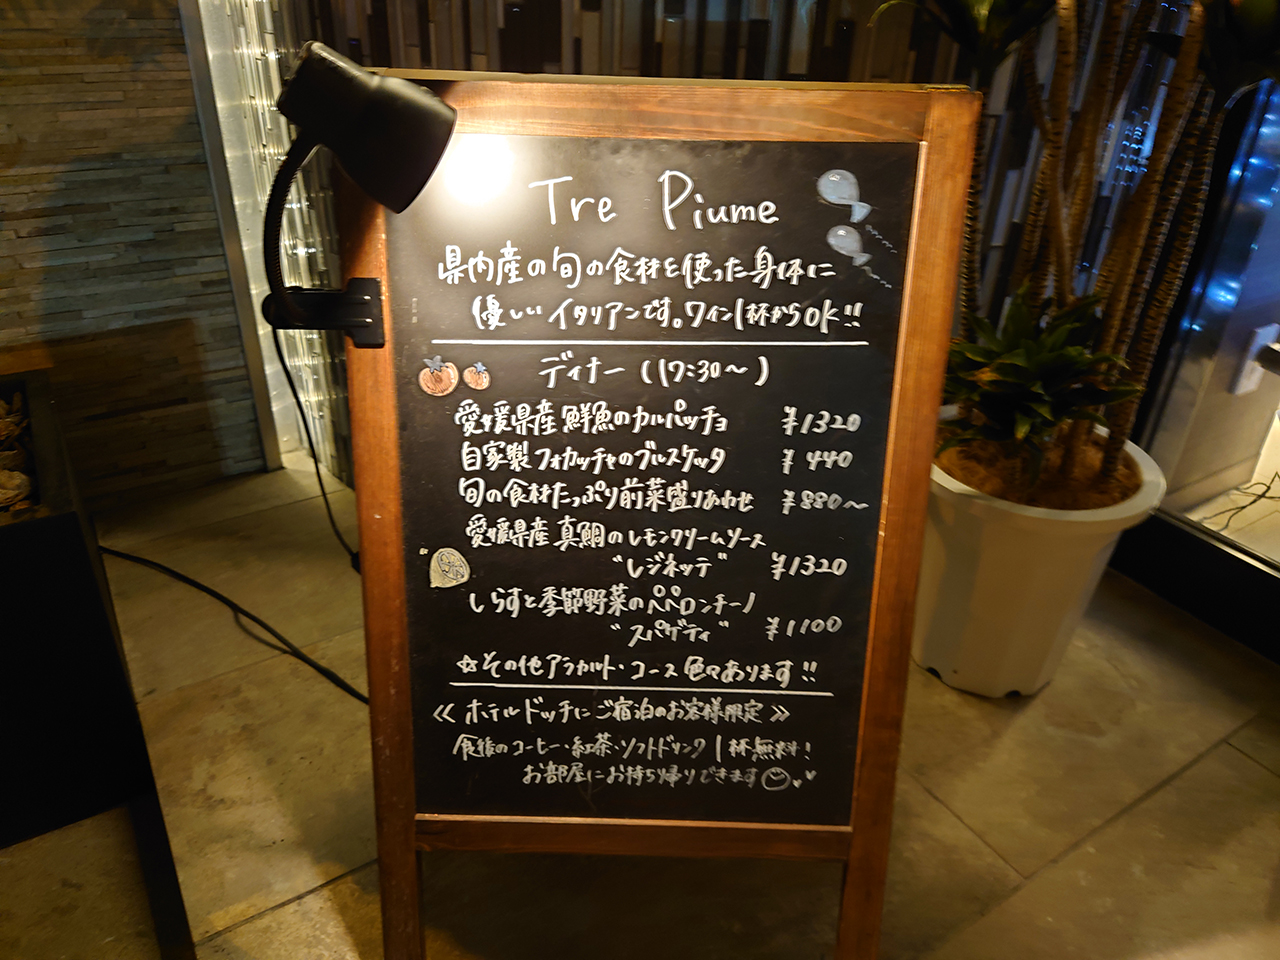 Tre Piume
県内産の旬の食材を使った身体に
優しいイタリアンです。ワイン1杯からOK!!
ディナー (17:30〜)
愛媛県産鮮魚のカルパッチョ ¥1320
自家製フォカッチャのブルスケッタ ¥440
旬の食材たっぷり前菜盛りあわせ ¥880〜
愛媛県産真鯛のレモンクリームソース
"レジネッテ" ¥1320
しらすと季節野菜のペペロンチーノ
"スパゲティ" ¥1100
☆その他アラカルト・コース色々あります!!
《ホテルドッチにご宿泊のお客様限定》
食後のコーヒー・紅茶・ソフトドリンク1杯無料!
お部屋にお持ち帰りできます